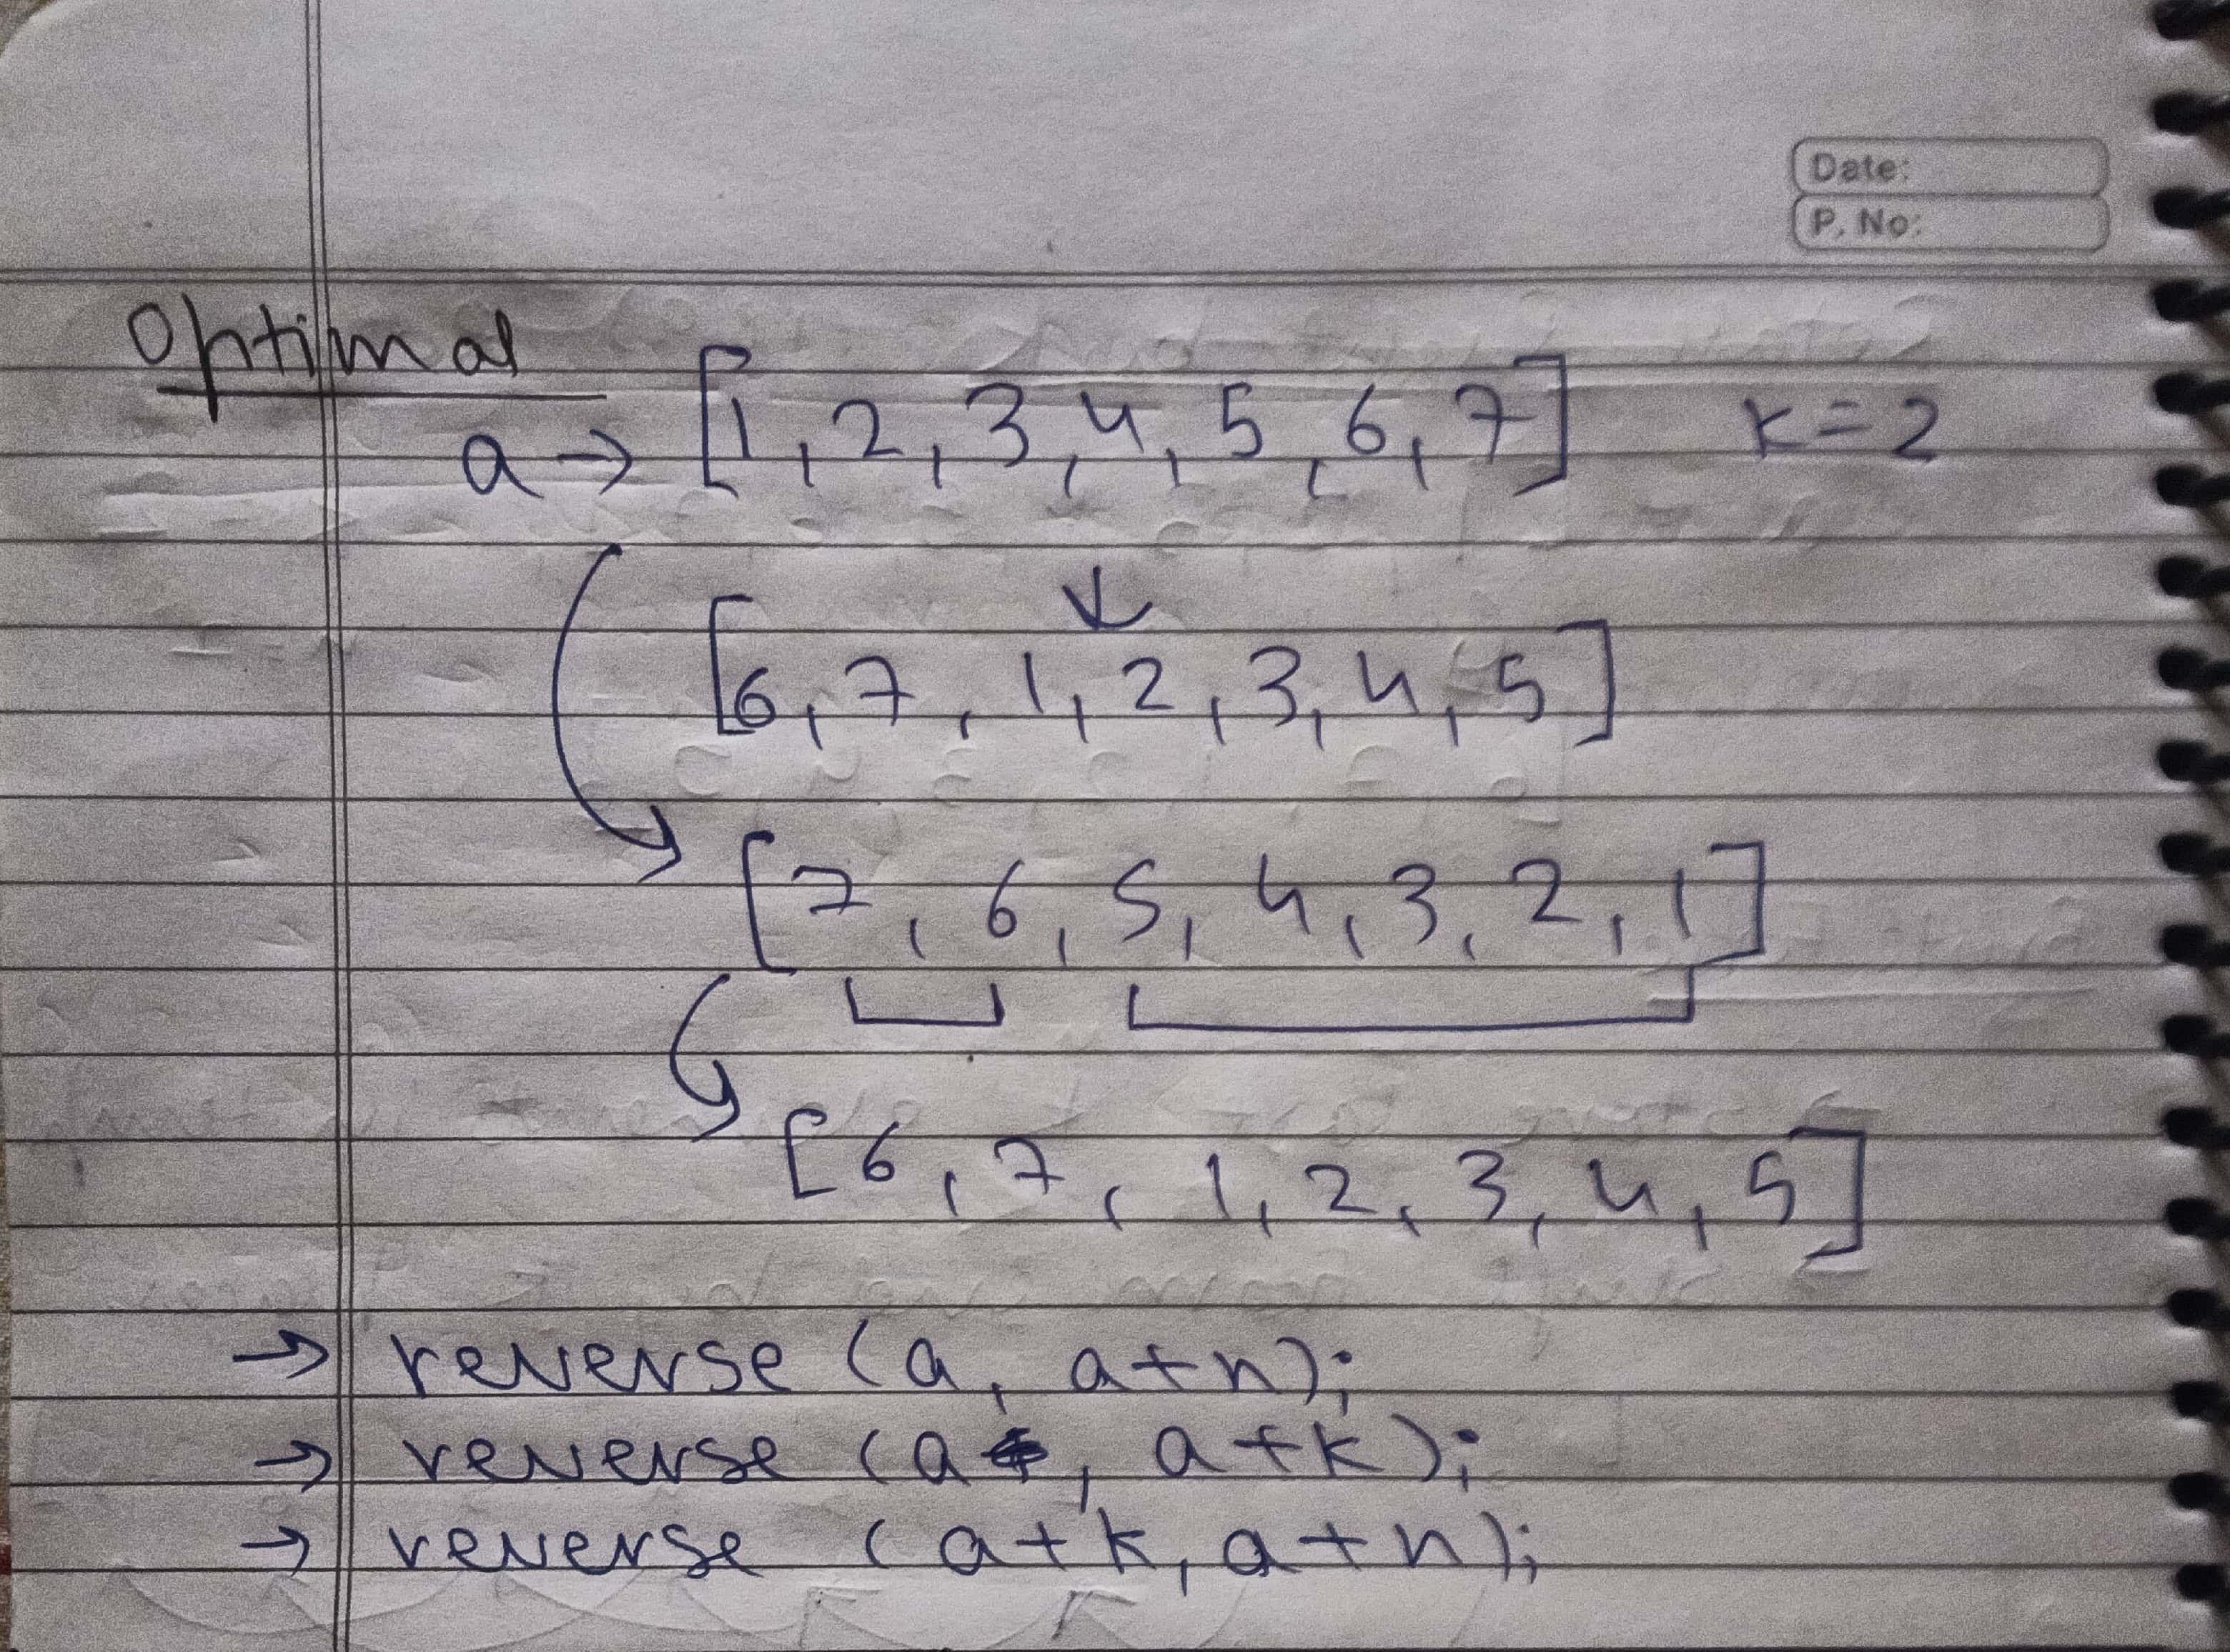 Date:
P. No:
Optimal
a → [1, 2, 3, 4, 5, 6, 7] K = 2
[6, 7, 1, 2, 3, 4, 5]
[7, 6, 5, 4, 3, 2, 1]
[6, 7, 1, 2, 3, 4, 5]
→ reverse (a, a+n);
→ reverse (a, a+k);
→ reverse (a+k, a+n);